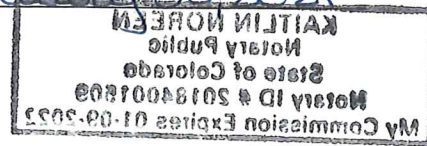 KAITLIN NOREEN
Notary Public
State of Colorado
Notary ID # 20184001509
My Commission Expires 01-09-2022